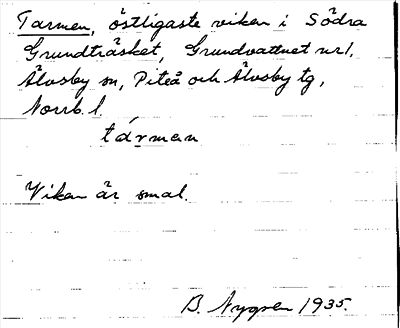 Tarmen, östligaste viken i Södra
Grundträsket, Grundvattnet nr 1,
Älvsby sn, Piteå och Älvsby tg,
Norrb. l.
tárman
Viken är smal.
B. Nygren 1935.